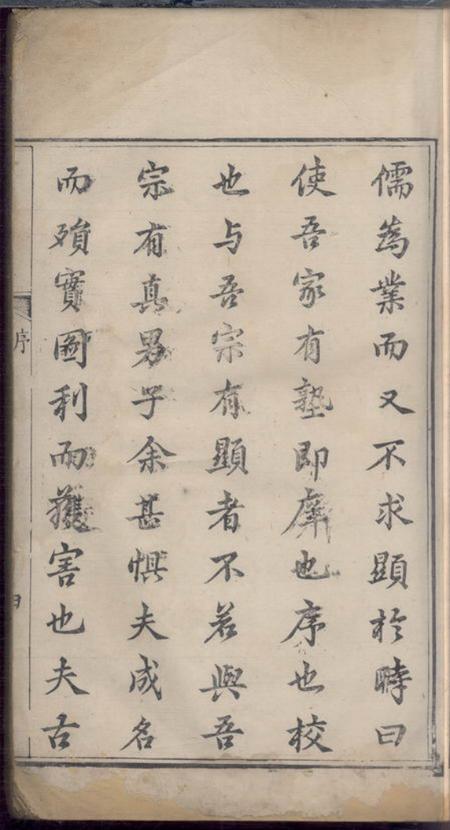 儒為業而又不求顯於時曰
使吾家有塾即庠也序也校
也与吾宗有顯者不若與吾
宗有真男子余甚惧夫成名
而殞實圖利而獲害也夫古
序